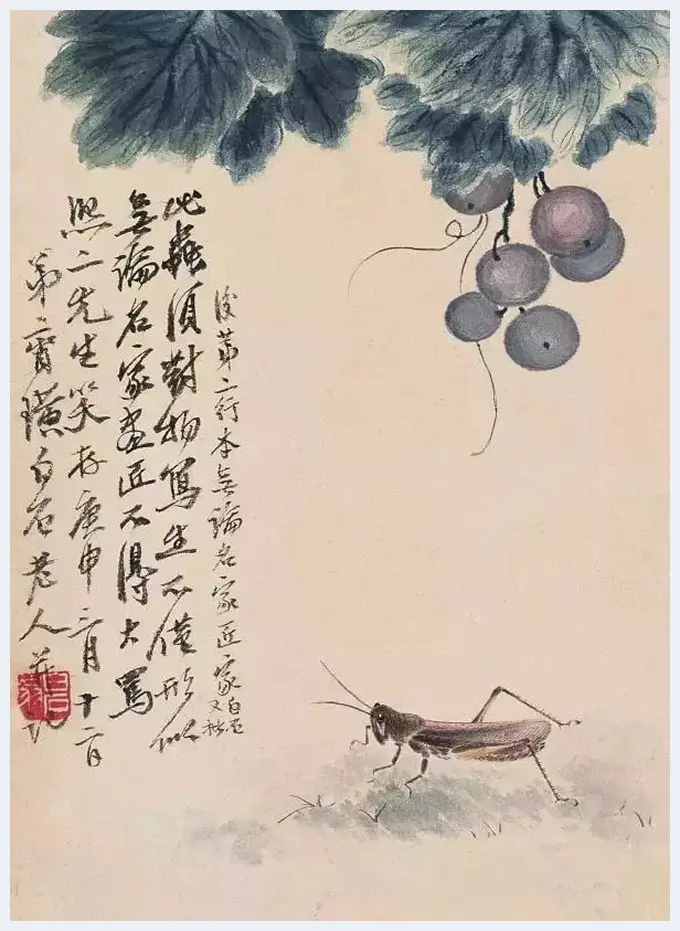 後第二行本無論名家匠家
白石又記
此蟲須對物寫生不僅形似
無論名家畫匠不得大罵
熙二先生笑存庚申三月十二日
弟齊璜白石老人並記
白石翁